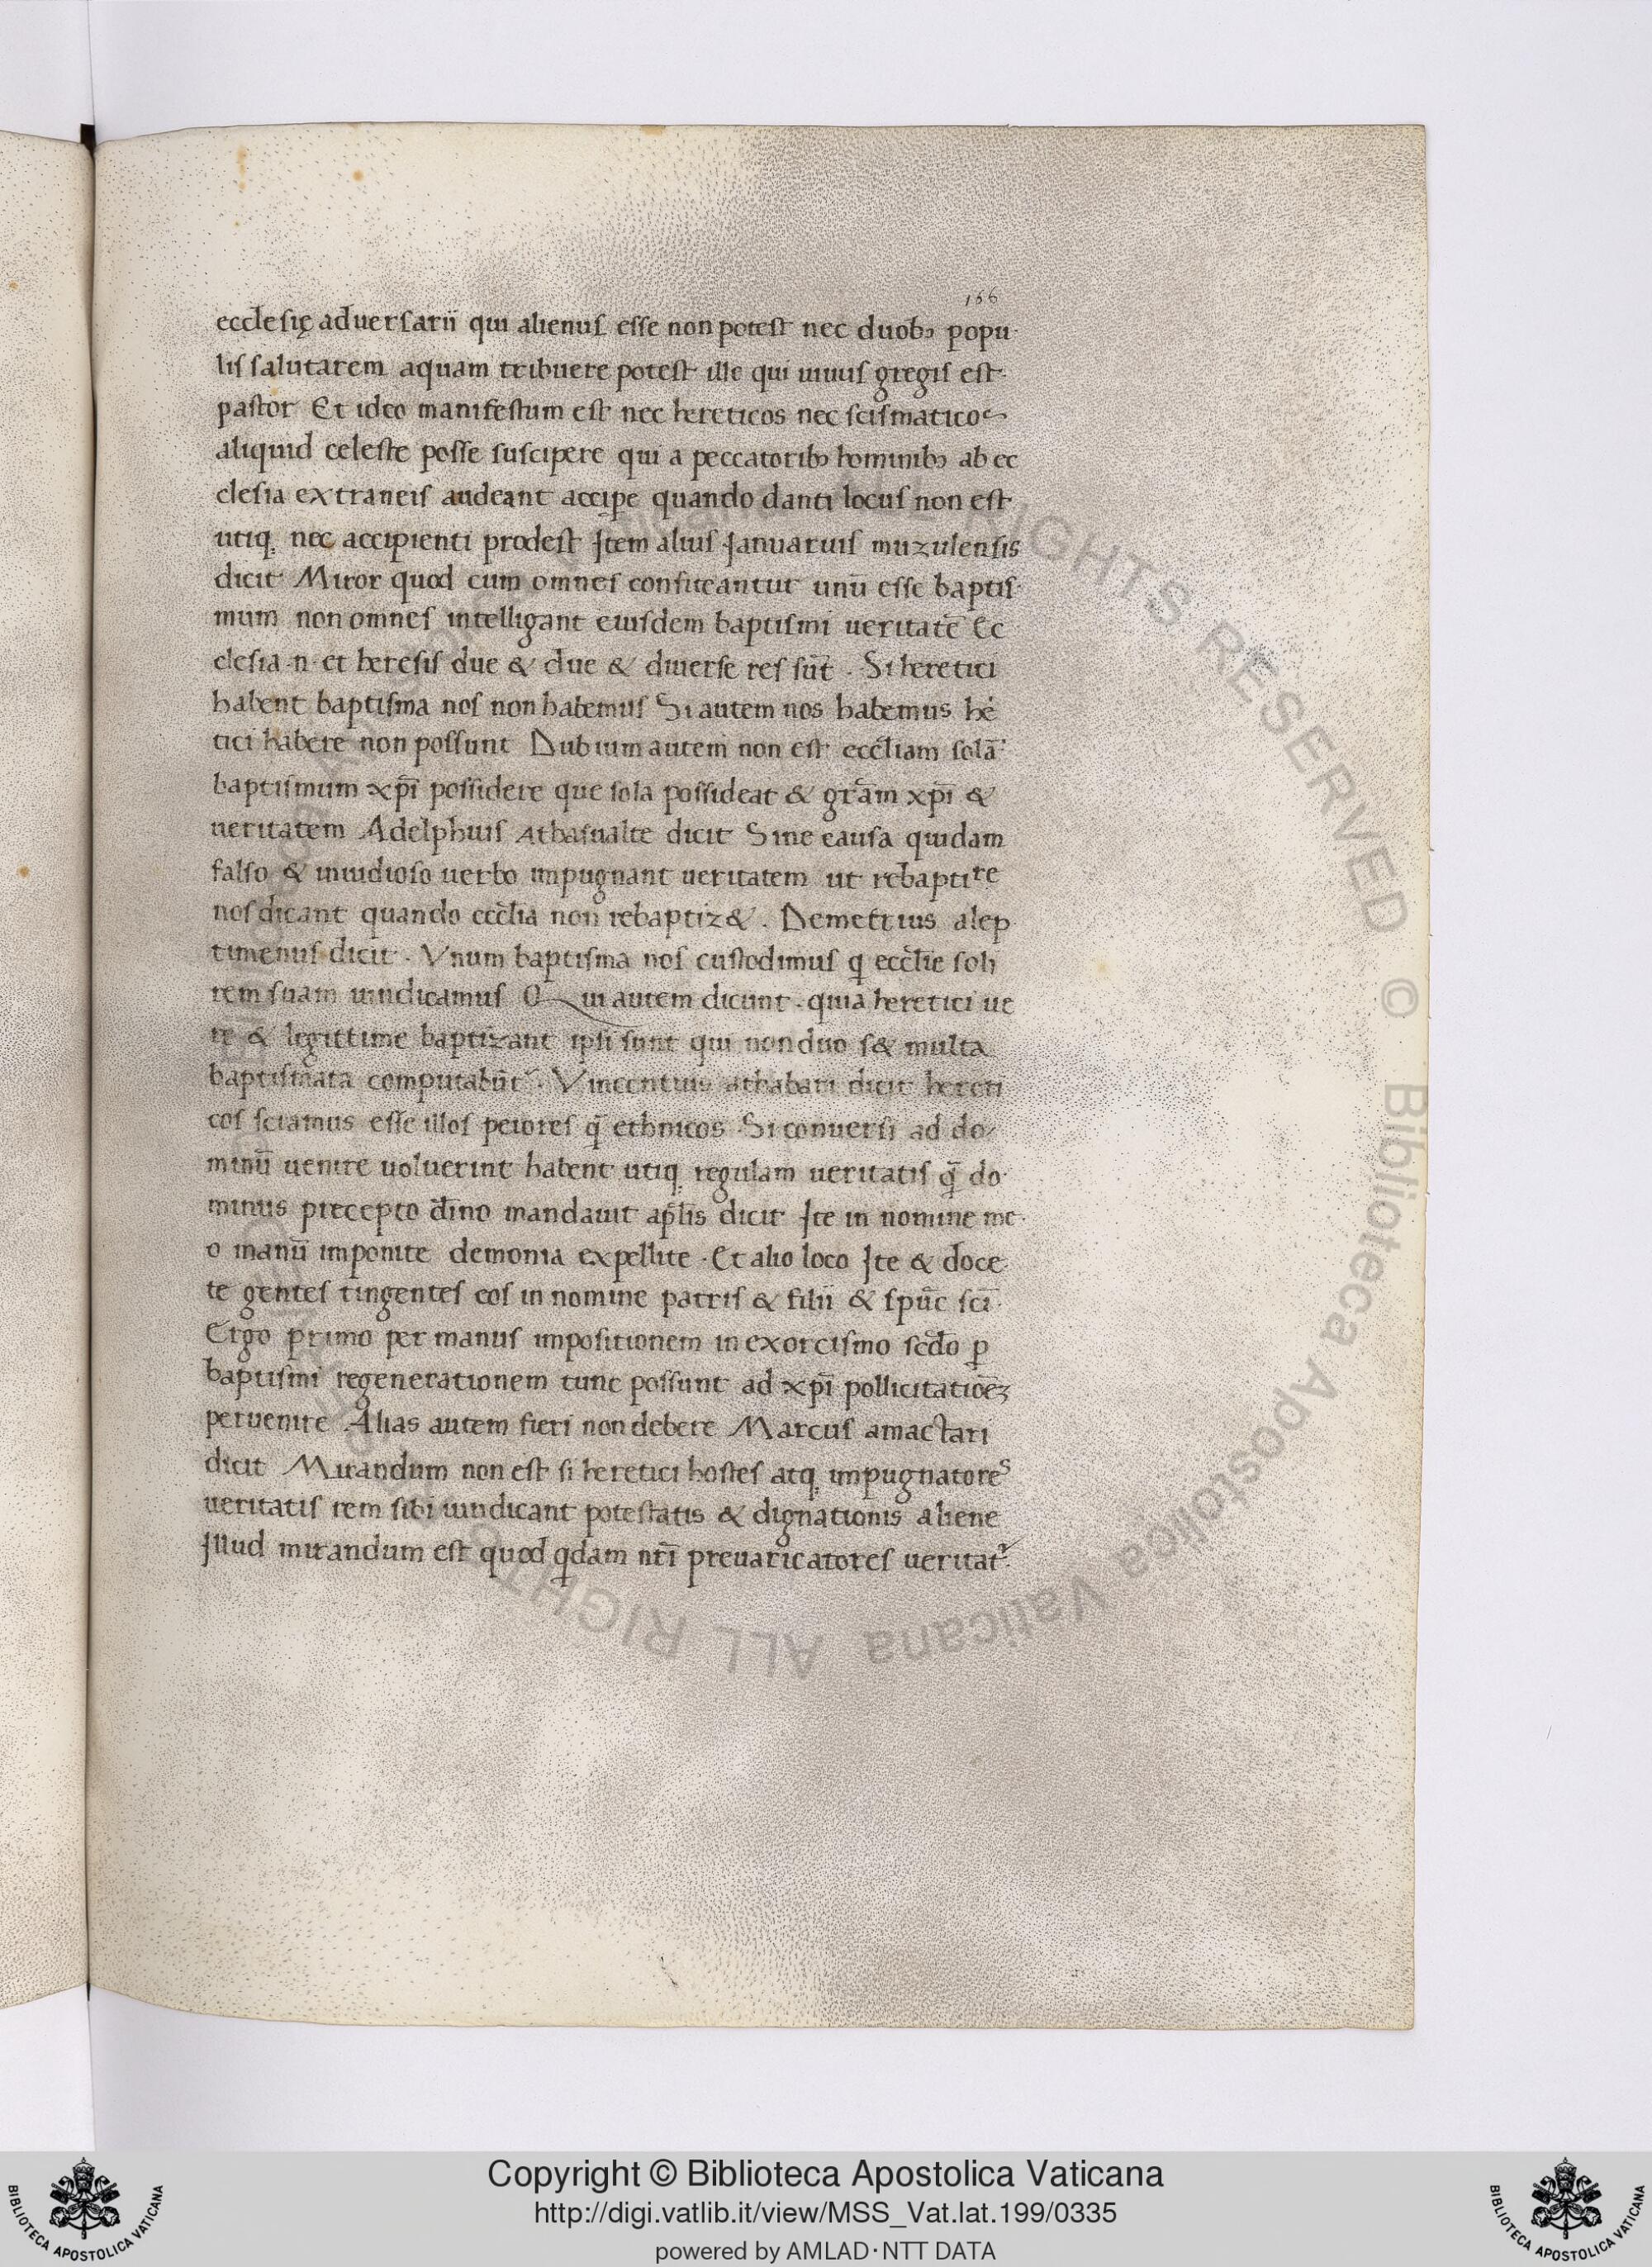 166
ecclesię aduersarii qui alienus esse non potest nec duobꝫ popu
lis salutarem aquam tribuere potest ille qui unius gregis est
pastor Et ideo manifestum est nec hereticos nec scismaticos
aliquid celeste posse suscipere qui a peccatoribꝫ hominibꝫ ab ec
clesia extraneis audeant acciꝑe quando danti locus non est
utiqꝫ nec accipienti prodest Item alius Ianuarius muzulensis
dicit Miror quod cum omnes confiteantur unū esse baptis
mum non omnes intelligant eiusdem baptismi ueritatē Ec
clesia .n. et heresis due & due & diuerse res sūt . Si heretici
habent baptisma nos non habemus Si autem nos habemus he
tici habere non possunt Dubium autem non est eccl̄iam solā
baptismum xp̄i possidere que sola possideat & gr̄am xp̄i &
ueritatem Adelphius Athasualte dicit Sine causa quidam
falso & inuidioso uerbo impugnant ueritatem ut rebaptire
nos dicant quando eccl̄ia non rebaptiz& . Demetrius alep
timenus dicit . Vnum baptisma nos custodimus q eccl̄ie soli
rem suam uindicamus Qui autem dicunt . quia heretici ue
re & legittime baptizant ipsi sunt qui non duo s& multa
baptismata computabūt . Vincentius athabari dicit hereti
cos sciamus esse illos peiores q̄ ethnicos Si conuersi ad do
minū uenire uoluerint habent utiqꝫ regulam ueritatis q̄ do
minus precepto d̄ino mandauit apl̄is dicit Ite in nomine me
o manū imponite demonia expellite . Et alio loco Ite & doce
te gentes tingentes eos in nomine patris & filii & spūc sc̄i .
Ergo primo per manus impositionem in exorcismo sc̄do ꝑ
baptismi regenerationem tunc possunt ad xp̄i pollicitatiōeꝫ
peruenire Alias autem fieri non debere Marcus amactari
dicit Mirandum non est si heretici hostes atqꝫ impugnatores
ueritatis rem sibi uindicant potestatis & dignationis aliene
Illud mirandum est quod qdam nr̄i preuaricatores ueritat
ALL RIGHTS RESERVED © Biblioteca Apostolica Vaticana
Copyright © Biblioteca Apostolica Vaticana
http://digi.vatlib.it/view/MSS_Vat.lat.199/0335
powered by AMLAD·NTT DATA
BIBLIOTECA APOSTOLICA VATICANA
BIBLIOTECA APOSTOLICA VATICANA